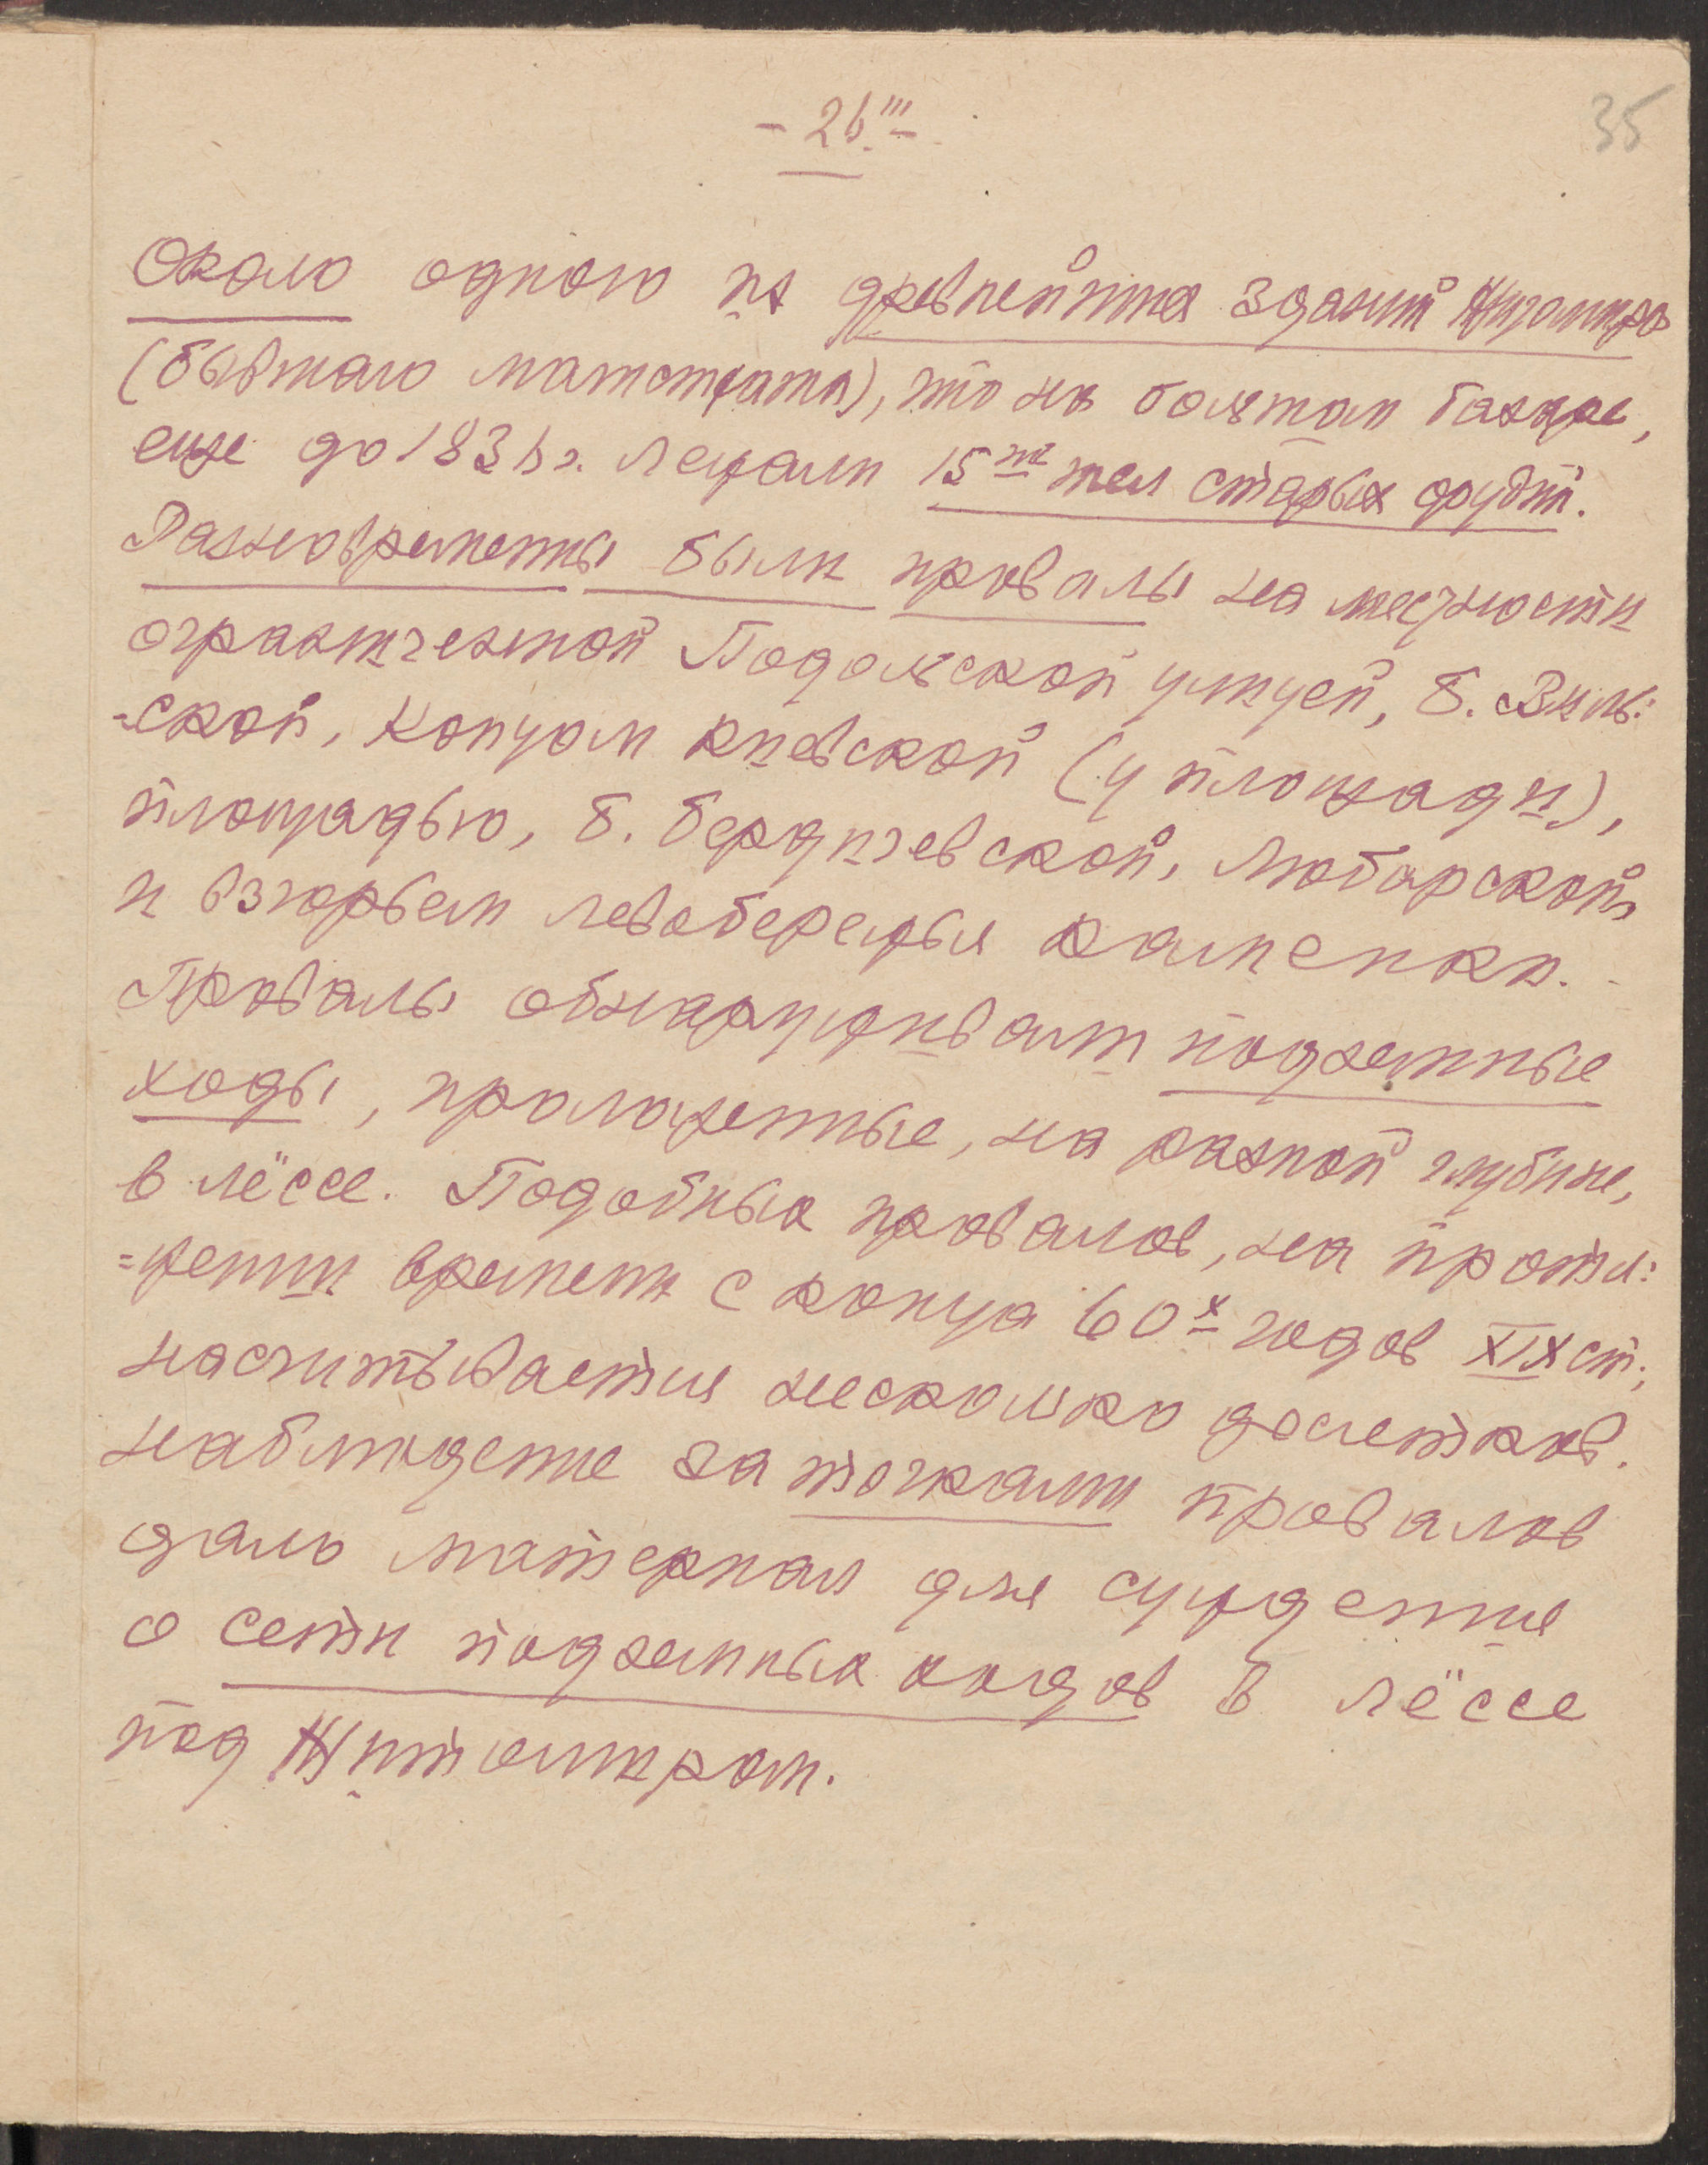 - 26.''' -
35
Около одного из древнейших зданий Житомира
(бывшаго магистрата), что на большом базаре,
еще до 183 г. лежали 15ть тел старых орудий.
Разновременны были провалы на местности
ограниченной Подольской улицей, Б. Виль:
=ской, концом Киевской (у площади),
площадью, Б. Бердичевской, Любарской,
и взгорьем левобережья Каменки.
Провалы обнаруживают подземные
ходы, проложенные, на разной глубине,
в лёссе. Подобных провалов, на протя:
=жении времени с конца 60х годов XIX ст.,
насчитывается несколько десятков.
Наблюдение за точками провалов
дало материал для суждения
о сети подземных ходов в лёссе
под Житомиром.